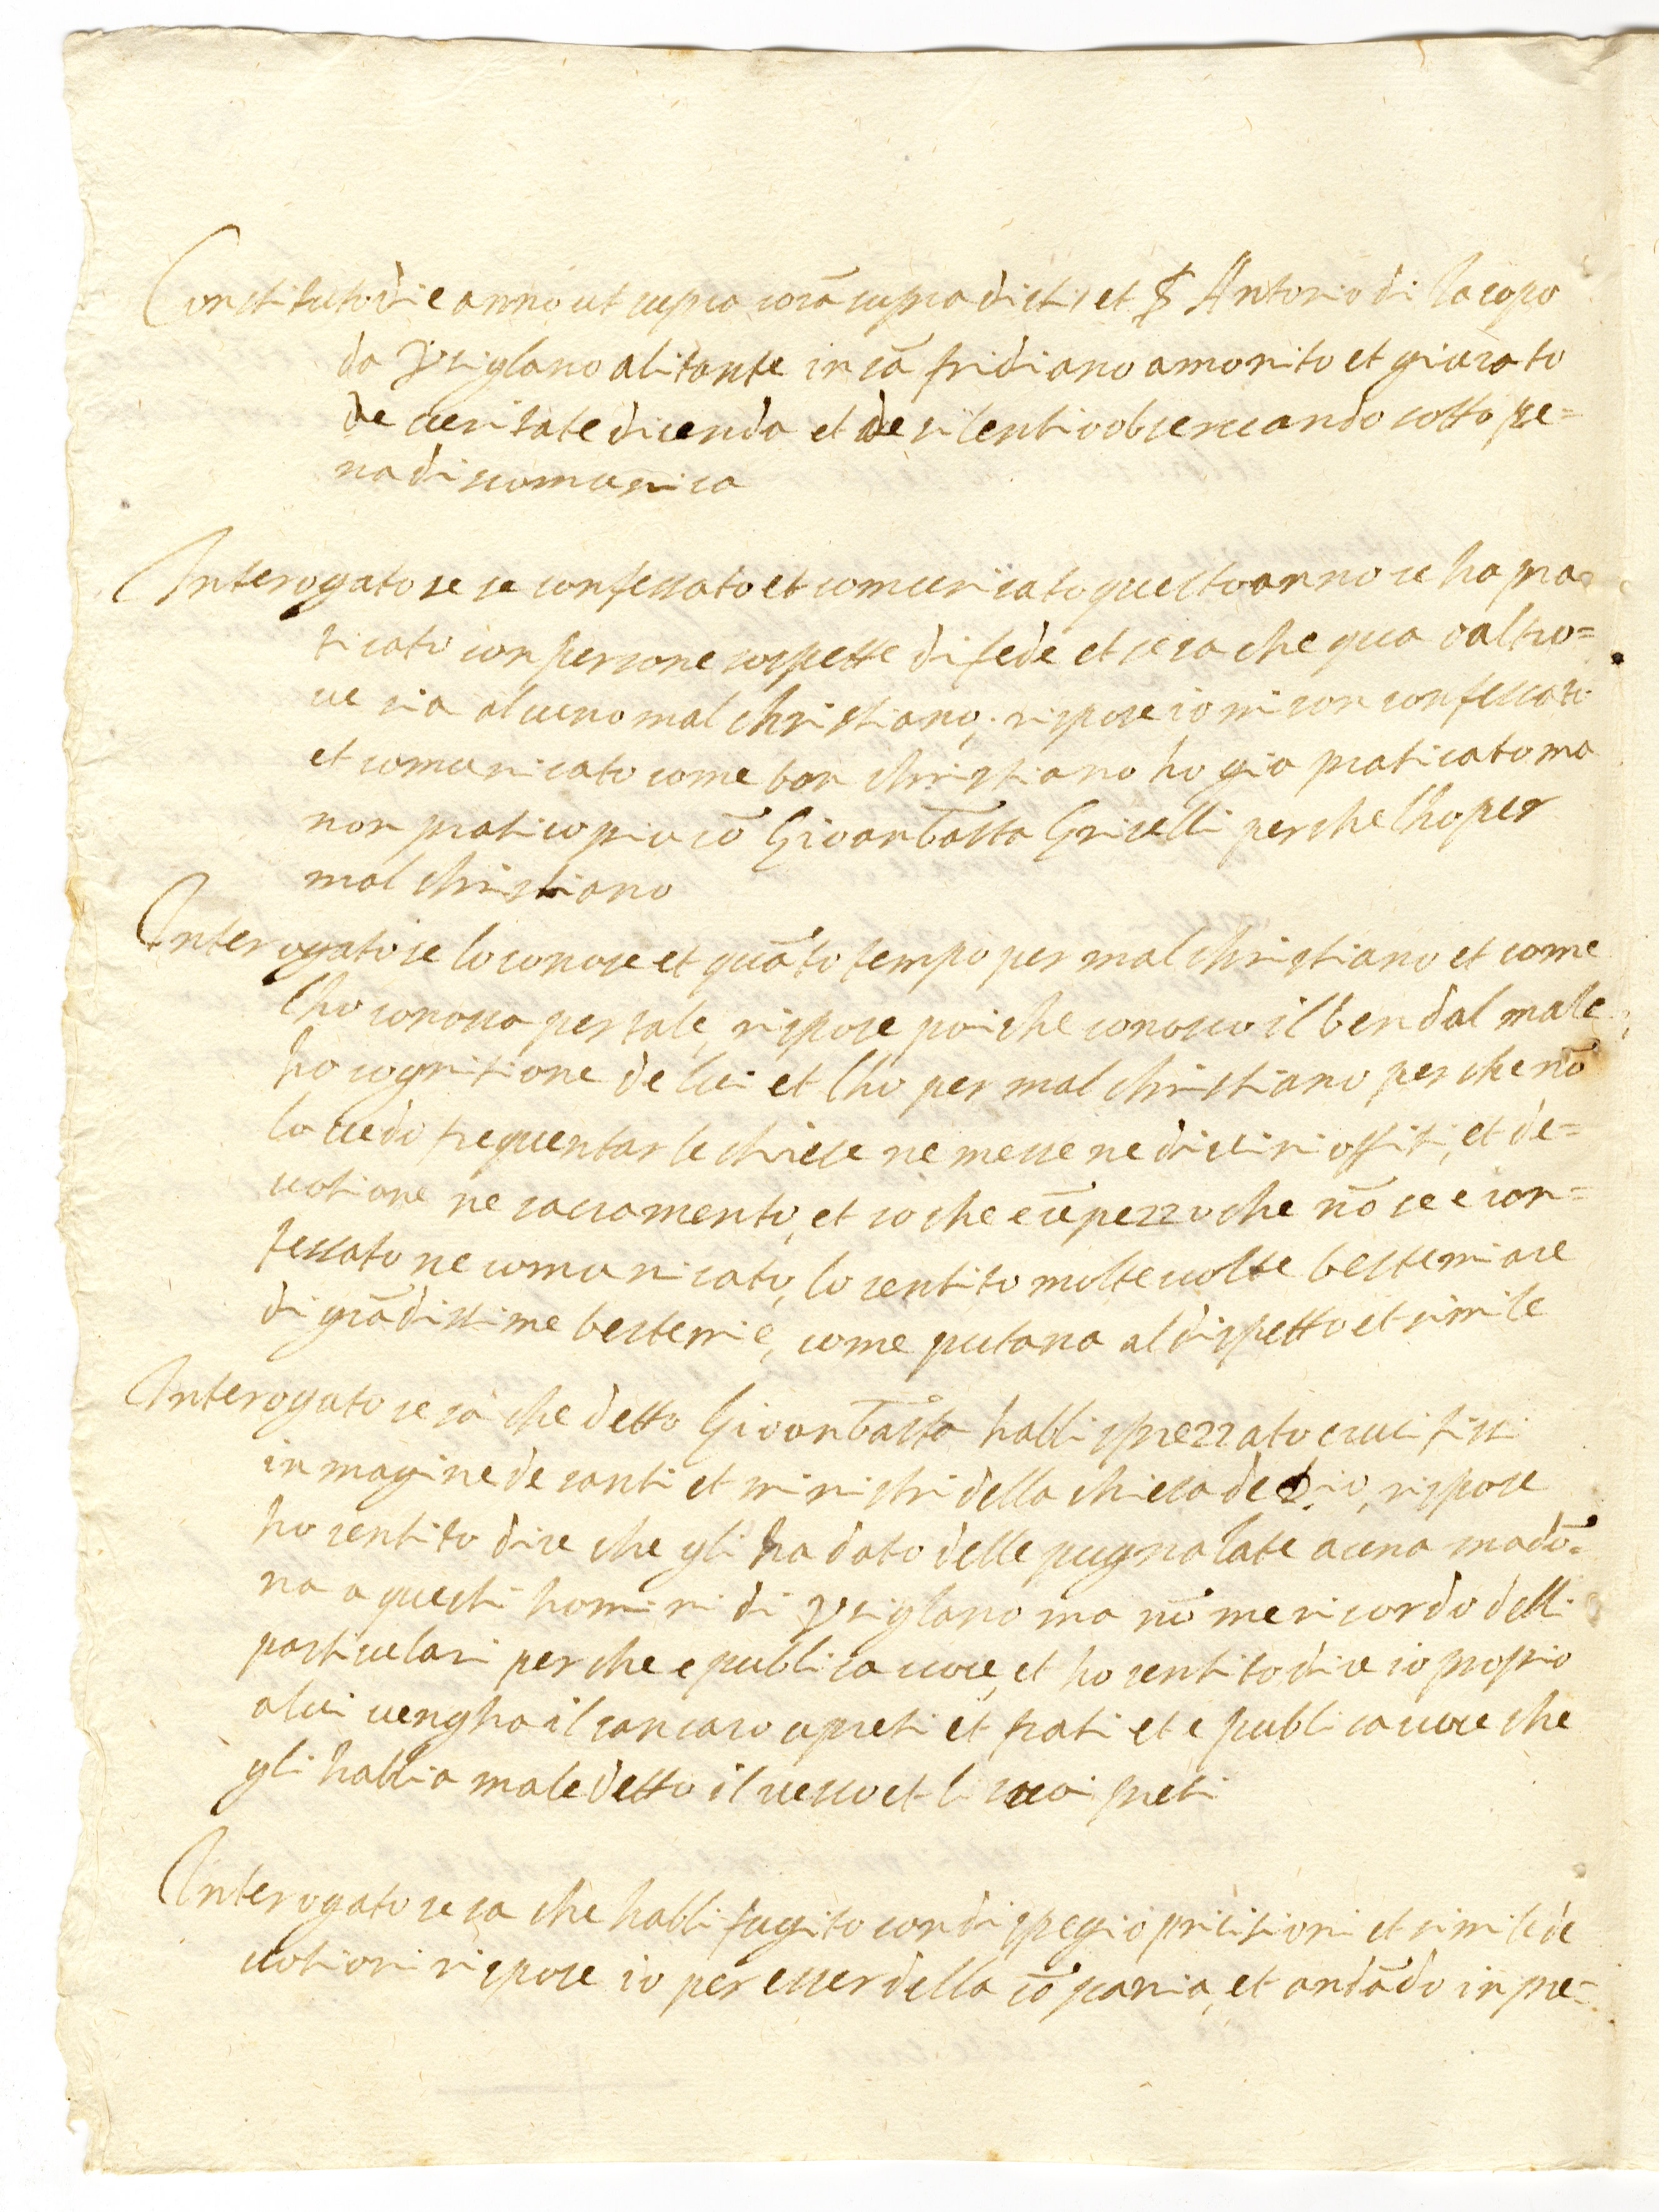 Constituto die anno ut supra corā supra dicti et S Antonio di Iacopo
da Vsiglano abitante in sā fridiano amonito et giurato
de ueritate dicenda et de silentio obseruando sotto pe=
na di scomunica
Interogato se se confessato et comunicato questo anno se ha pra
ticato con persone sospette di fede et se sa che qua o altro=
ue sia alcuno mal christiano, rispose io mi son confessato
et comunicato come bon christiano ho gia praticato ma
non pratico piu cō Giouanbatta Griselli perche lho per
mal christiano
Interogato se lo conose et quāto tempo per mal christiano et come
lho conossa per tale, rispose poi che conosco il ben dal male
ho cognitione de lui et lho per mal christiano perche nō
lo uedo frequentar le chiese ne messe ne diuini offiti, et de=
uotione ne sacramento, et so che e ūpezzo che nō se e con=
fessato ne comunicato, lo sentito molte uolte bestemiare
di grādissime bestemie, come putana al dispetto et simile
Interogato se sa che detto Giouanbatta habbi sprezzato crucifissi
inmagine de santi et ministri della chiesa de Dio, rispose
ho sentito dire che gli ha dato delle pugnalate a una madō=
na a questi homini di Vsiglano ma nō me ricordo delli
particulari perche e publica uoce, et ho sentito dire io proprio
a lui uengha il cancaro a preti et frati et e publica uoce che
gli habbia maledetto il uescouo et li suoi preti
Interogato se sa che habbi fugito con dispegio pricisioni et simile de
uotioni rispose io per esser della cōpania, et andādo in pre=